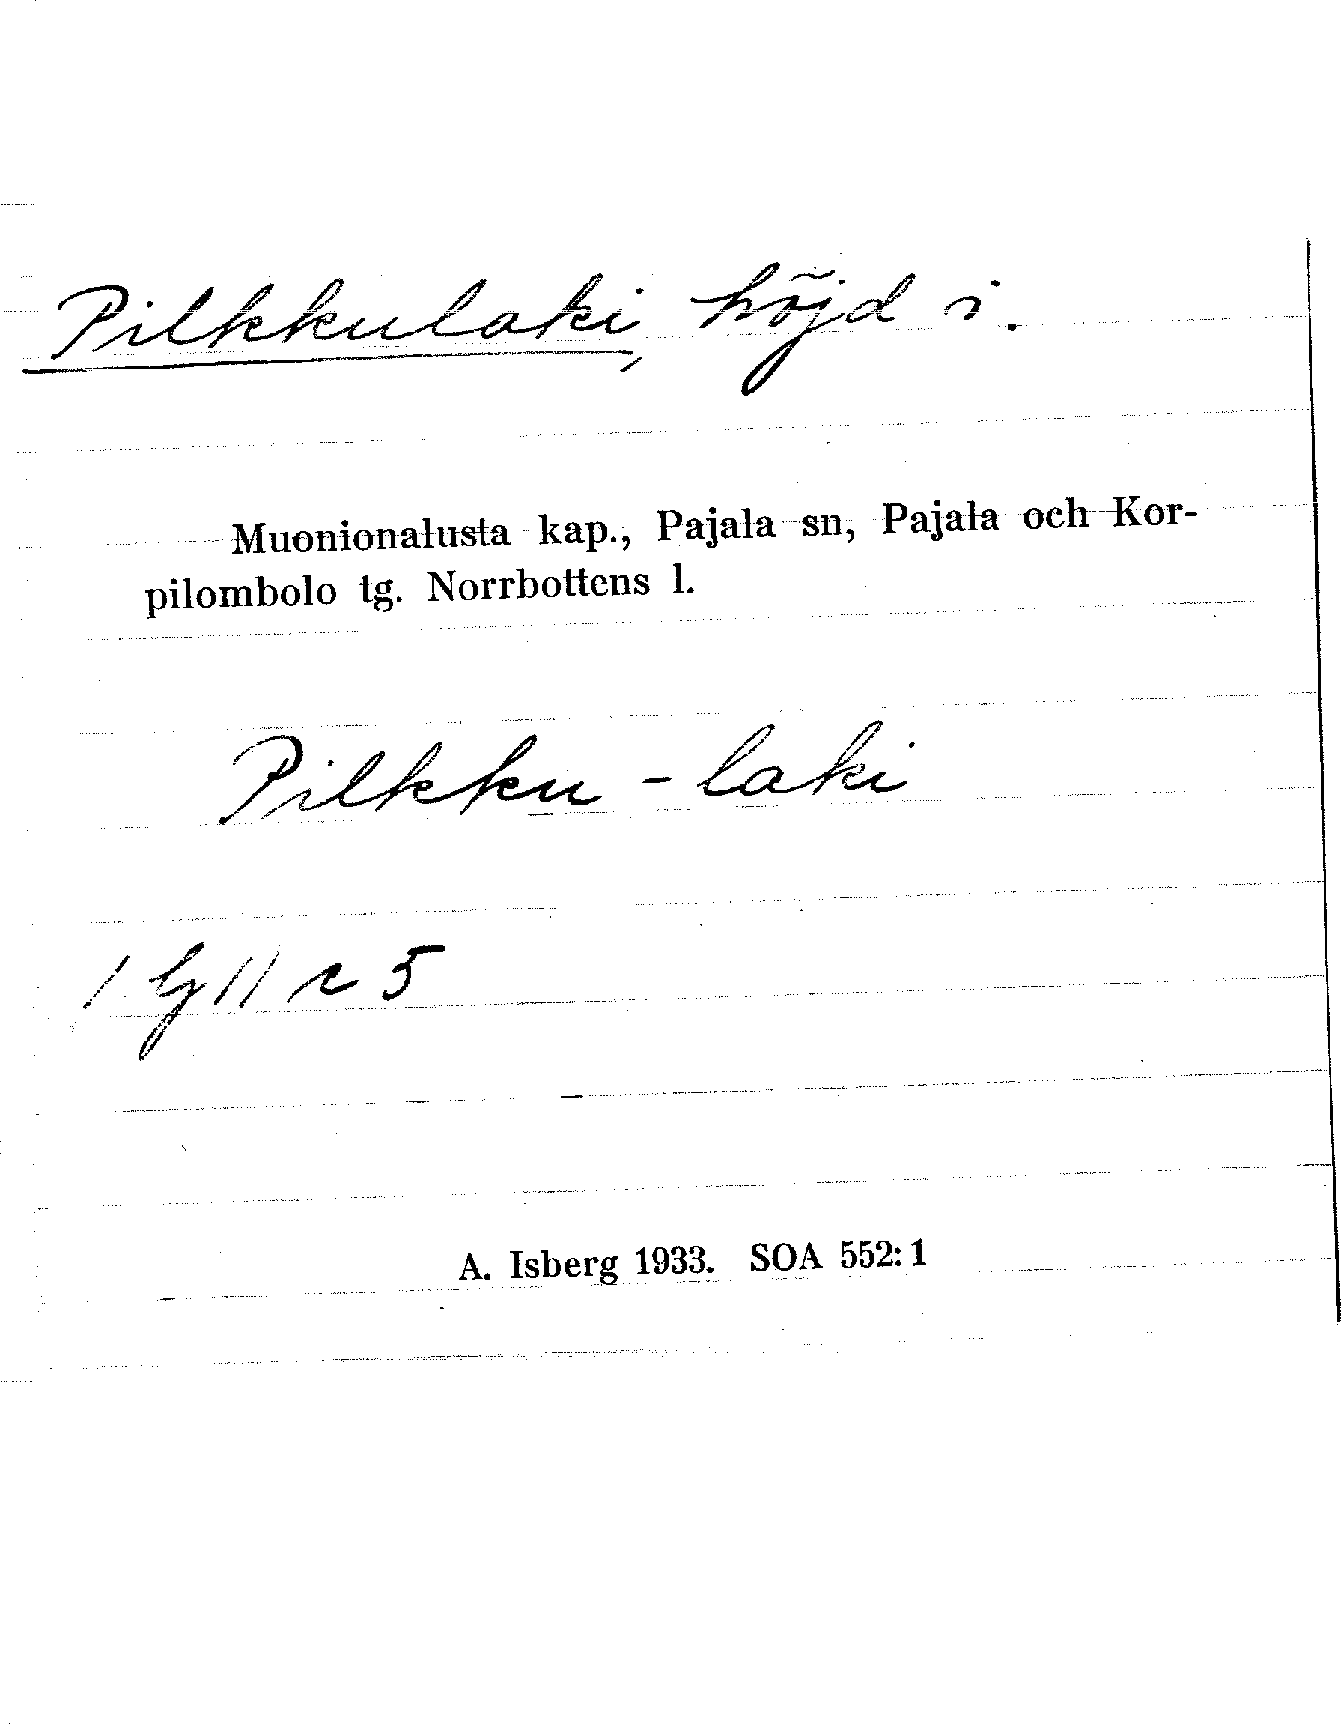 Pilkkulaki, höjd i.
Muonionalusta kap., Pajala sn, Pajala och Kor-
pilombolo tg. Norrbottens l.
Pilkku - laki
c 5
A. Isberg 1933. SOA 552:1